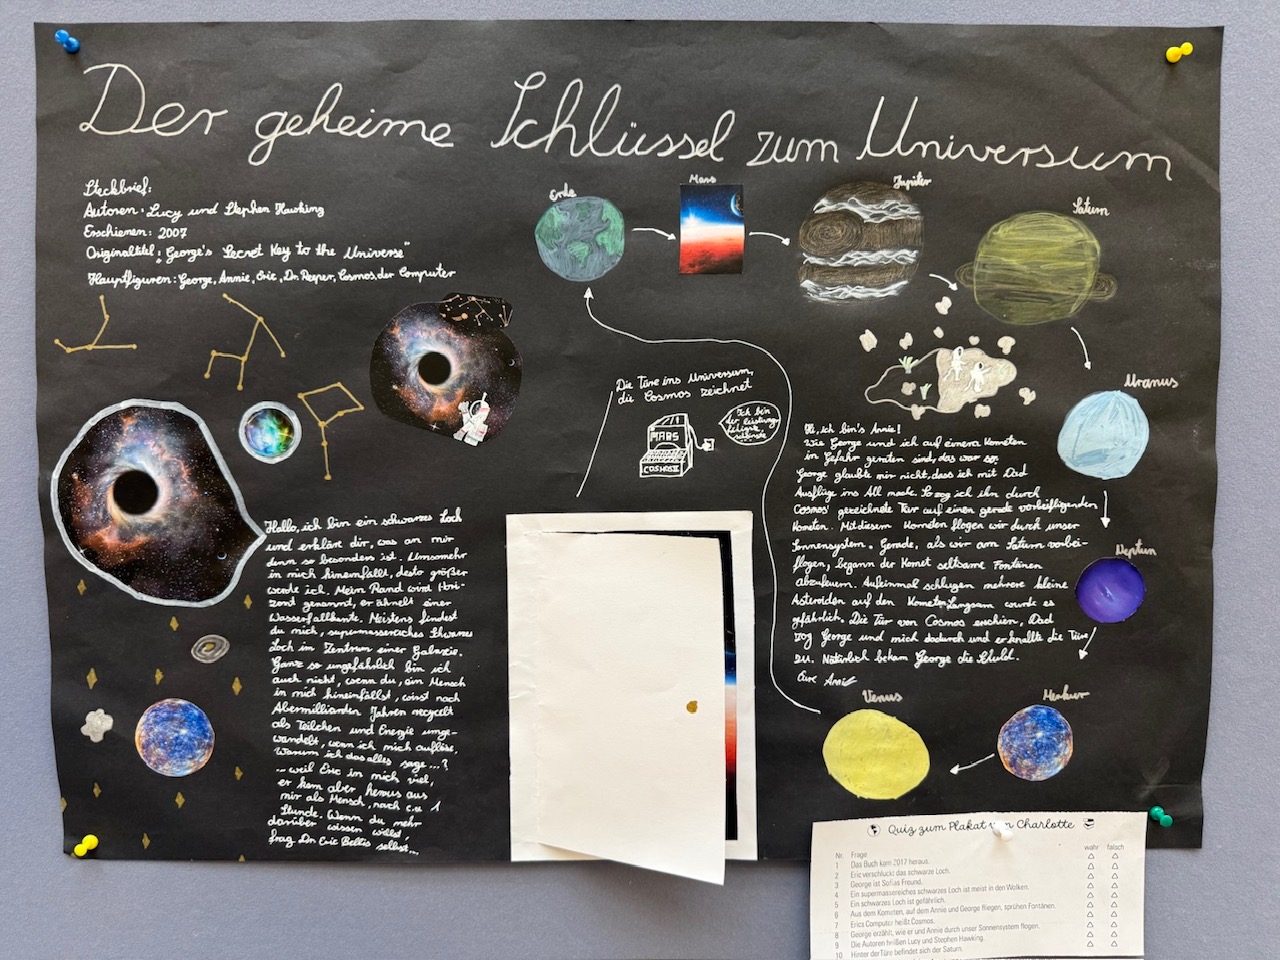 Der geheime Schlüssel zum Universum
Steckbrief:
Autoren: Lucy und Stephen Hawking
Erschienen: 2007
Originaltitel: "George's Secret Key to the Universe"
Hauptfiguren: George, Annie, Eric, Dr. Reeper, Cosmos, der Computer
Erde
Mars
Jupiter
Saturn
Uranus
Neptun
Merkur
Venus
Die Türe ins Universum,
die Cosmos zeichnet
Ich bin
der leistungs-
fähigste
MARS
COSMOS
Hallo, ich bin ein schwarzes Loch
und erkläre dir, was an mir
denn so besonders ist. Umsomehr
in mich hineinfällt, desto größer
werde ich. Mein Rand wird Hori-
zont genannt, er ähnelt einer
Wasserfallkante. Meistens findest
du mich, supermassereiches schwarzes
Loch im Zentrum einer Galaxie.
Ganz so ungefährlich bin ich
auch nicht, wenn du, ein Mensch
in mich hineinfällst, wirst nach
Abermilliarden Jahren recycelt
als Teilchen und Energie umge-
wandelt, wenn ich mich auflöse,
Warum ich das alles sage...?
...weil Eric in mich viel,
er kam aber heraus aus
mir als Mensch, nach c.a 1
Stunde. Wenn du mehr
darüber wissen willst
frag Dr. Eric Bellis selbst...
ich bin's Annie!
Wie George und ich auf einem Kometen
in Gefahr geraten sind, das war so:
George glaubte mir nicht, dass ich mit Dad
Ausflüge ins All mache. So zog ich ihn durch
Cosmos' gezeichnete Tür auf einen gerade vorbeifliegenden
Kometen. Mit diesem Kometen flogen wir durch unser
Sonnensystem. Gerade, als wir am Saturn vorbei-
flogen, begann der Komet seltsame Fontänen
abzufeuern. Aufeinmal schlugen mehrere kleine
Asteroiden auf den Kometen. Langsam wurde es
gefährlich. Die Tür von Cosmos erschien, Dad
zog George und mich dadurch und er knallte die Türe
zu. Natürlich bekam George die Schuld.
Eure Annie
Quiz zum Plakat von Charlotte
Nr. Frage wahr falsch
1 Das Buch kam 2017 heraus.
2 Eric verschluckt das schwarze Loch.
3 George ist Sofias Freund.
4 Ein supermassereiches schwarzes Loch ist meist in den Wolken.
5 Ein schwarzes Loch ist gefährlich.
6 Aus dem Kometen, auf dem Annie und George fliegen, sprühen Fontänen.
7 Erics Computer heißt Cosmos.
8 George erzählt, wie er und Annie durch unser Sonnensystem flogen.
9 Die Autoren heißen Lucy und Stephen Hawking.
10 Hinter der Türe befindet sich der Saturn.